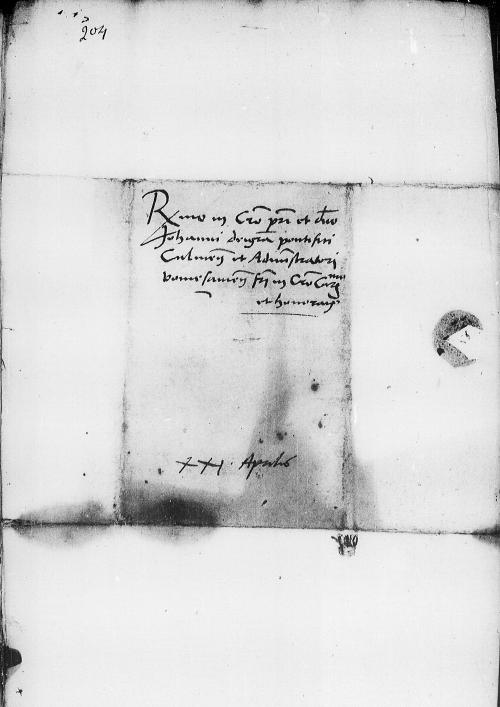 204
Rmo in Cro pri et dno
Johanni dei gra pontifici
Culmen et Administratori
pomesanien fri in Cro Carmo
et honorando
XXI Aprilis